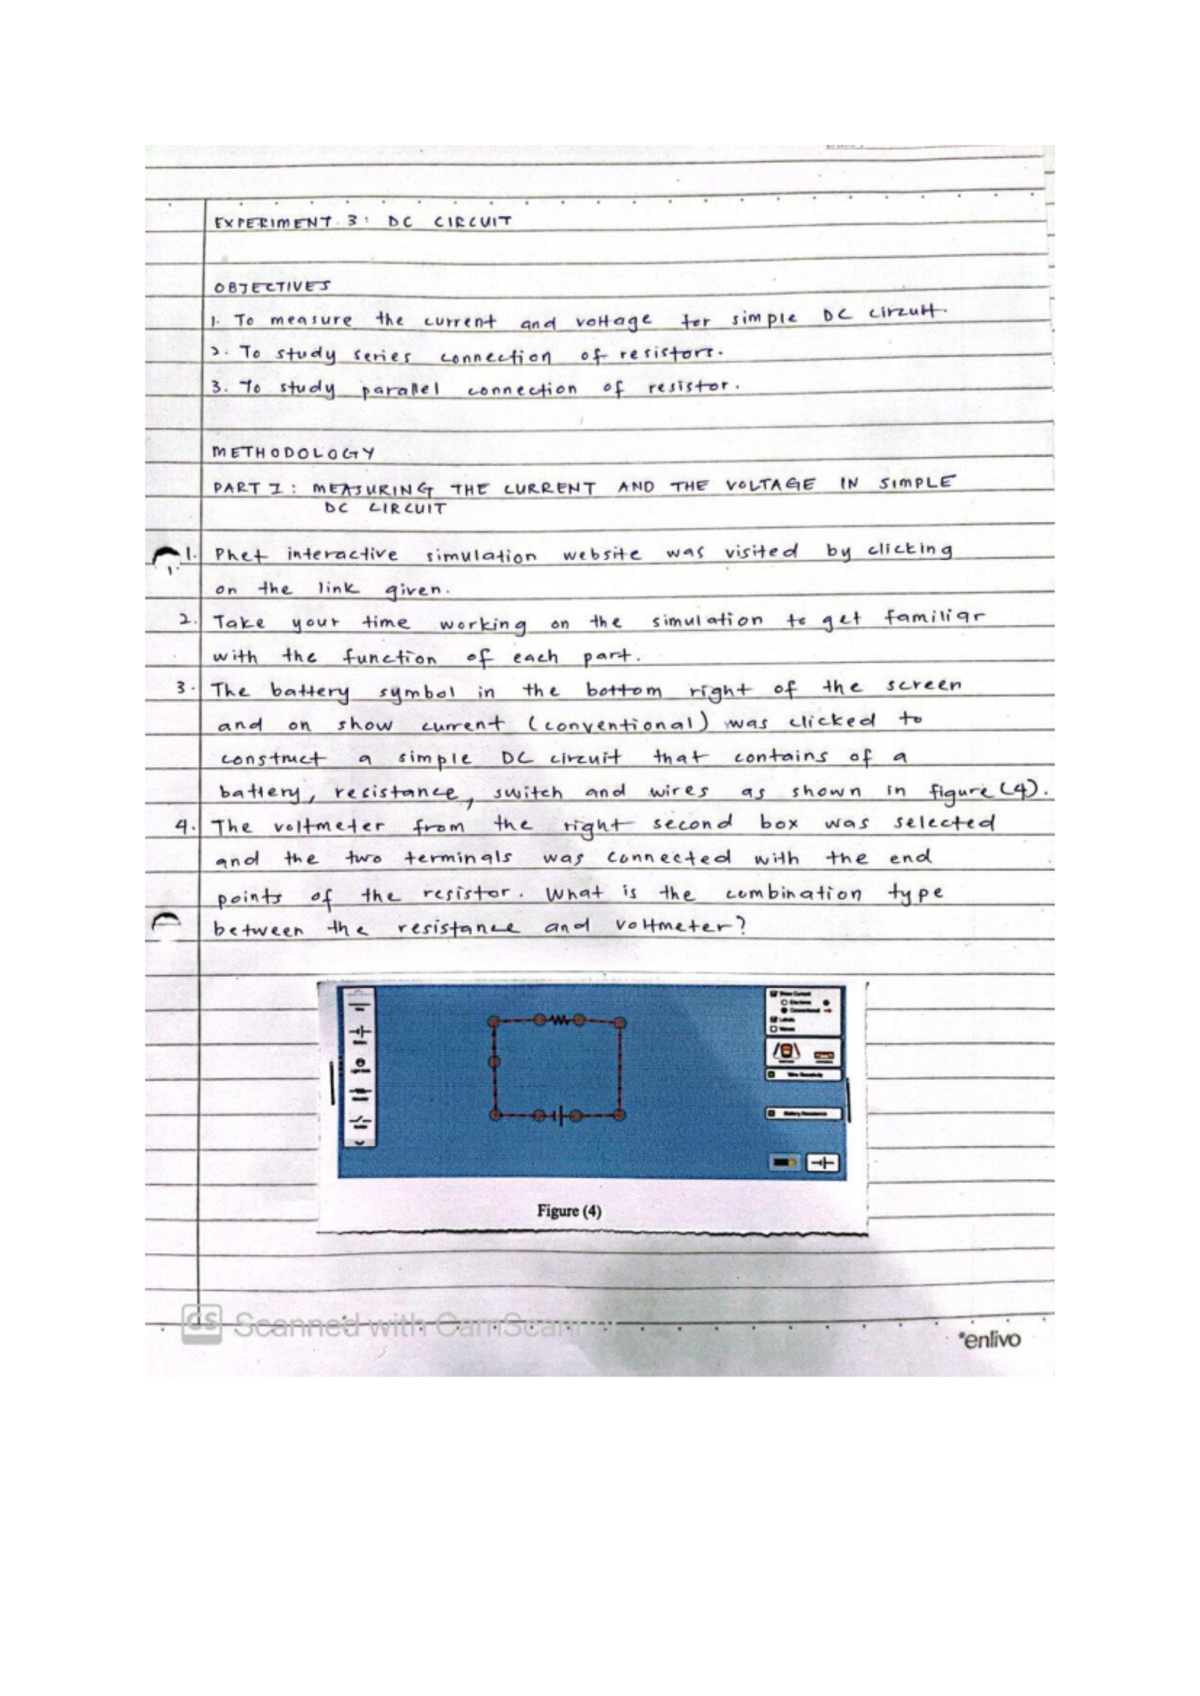 EXPERIMENT 3: DC CIRCUIT
OBJECTIVES
1. To measure the current and voltage for simple DC circuit.
2. To study series connection of resistors.
3. To study parallel connection of resistor.
METHODOLOGY
PART I: MEASURING THE CURRENT AND THE VOLTAGE IN SIMPLE
DC CIRCUIT
1. Phet interactive simulation website was visited by clicking
on the link given.
2. Take your time working on the simulation to get familiar
with the function of each part.
3. The battery symbol in the bottom right of the screen
and on show current (conventional) was clicked to
construct a simple DC circuit that contains of a
battery, resistance, switch and wires as shown in figure (4).
4. The voltmeter from the right second box was selected
and the two terminals was connected with the end
points of the resistor. What is the combination type
between the resistance and voltmeter?
Show Current
Electrons
Conventional
Labels
Values
Figure (4)
CS Scanned with CamScanner
*enlivo